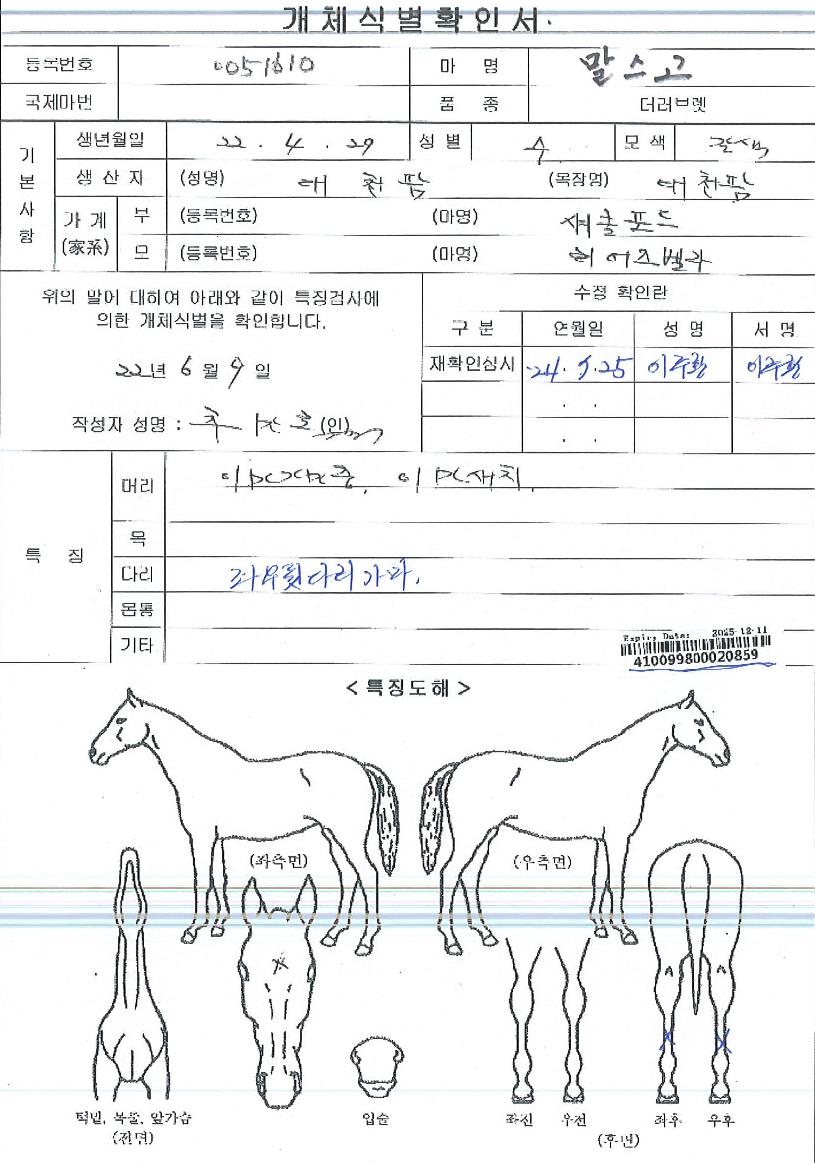 개체식별확인서
등록번호 0051610 마 명 말스고
국제마번 품 종 더러브렛
기본사항
생년월일 22 . 4 . 29 성별 수 모색 갈색
생산자 (성명) 대천팜 (목장명) 대천팜
가계 (家系)
부 (등록번호) (마명) 섀클포드
모 (등록번호) (마명)
위의 말에 대하여 아래와 같이 특징검사에
의한 개체식별을 확인합니다.
22년 6월 9일
작성자 성명 : (인)
수정 확인란
구 분 연월일 성 명 서 명
재확인심시 24. 5. 25
. .
. .
특 징
머리
목
다리 좌우뒷다리가마.
몸통
기타
Expiry Date: 2025-12-11
410099800020859
< 특징도해 >
(좌측면) (우측면)
턱밑, 목줄, 앞가슴
(전면)
입술
좌전 우전 좌후 우후
(후면)